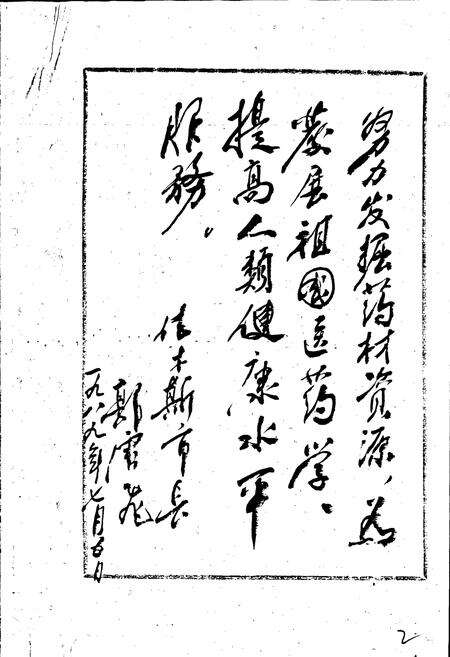 努力发掘药材资源，为
發展祖國医药学、
提高人類健康水平
服務。
佳木斯市长
郭
一九八九年七月五日
2